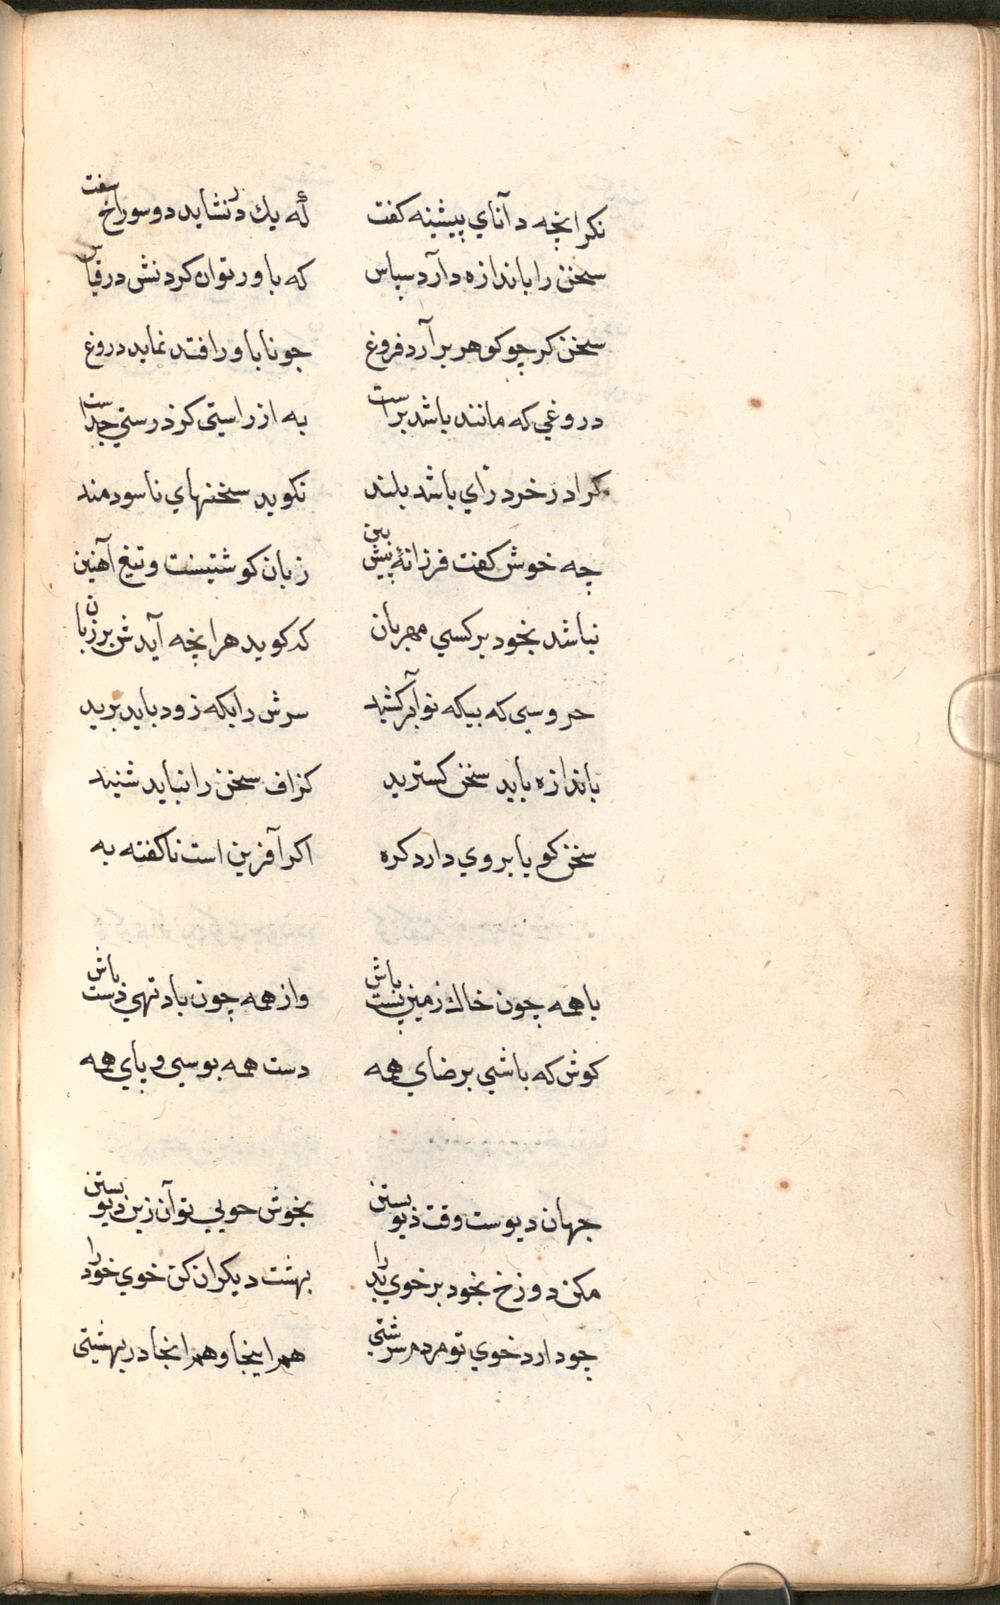 نكر انچه دآناي پيشينه كفت كه يك در نشايد دو سوراخ سفت
سخن را باندازه دآرد سپاس كه باور توان كردنش در قياس
سخن كر چو كوهر بر آرد فروغ جو نا باور افتد نمايد دروغ
دروغي كه مانند باشد براست به از راستي كز درستي جداست
كرا در خرد رٰاي باشد بلند نكويد سخنهاي ناسودمند
چه خوش كفت فرزانۀ پيش بين زبان كوشتيست و تيغ آهنين
نباشد بخود بر كسي مهربان كه كويد هر انچه آيدش بر زبان
خروسي كه بيكه نوآ بر كشيد سرش را بكه زود بايد بريد
باندازه بايد سخن كستريد كزاف سخن را نبايد شنيد
سخن كو يا بروي دارد كره اكر آفرين است ناكفته به
با همه چون خاك زمين پست باش واز همه چون باد تهي دست باش
كوش كه باشي برضاي همه دست همه بوسي و پاي همه
جهان ديوست وقت ديو بستن بخوش خويي توآن زين ديو رستن
مكن دوزخ بخود بر خوي بد را بهشت ديكران كن خوي خود را
چو دارد خوي تو مردم سرشتي هم اينجا و هم انجا در بهشتي